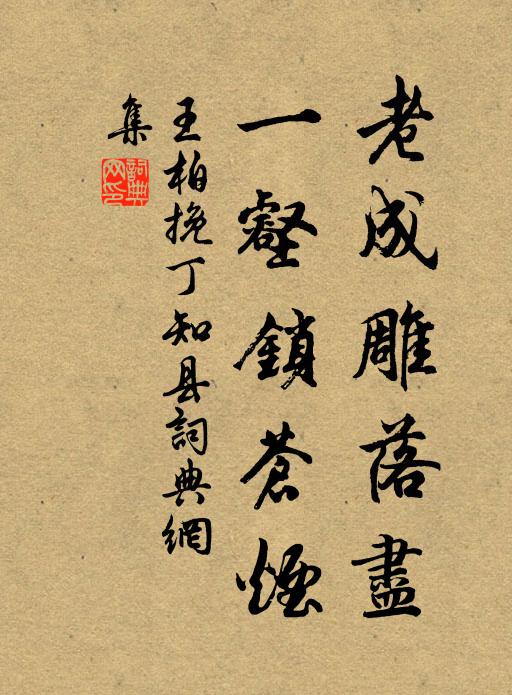 老成雕落盡
一壑鎖蒼煙
王柏挽丁知县詞典網
集
詞典網印